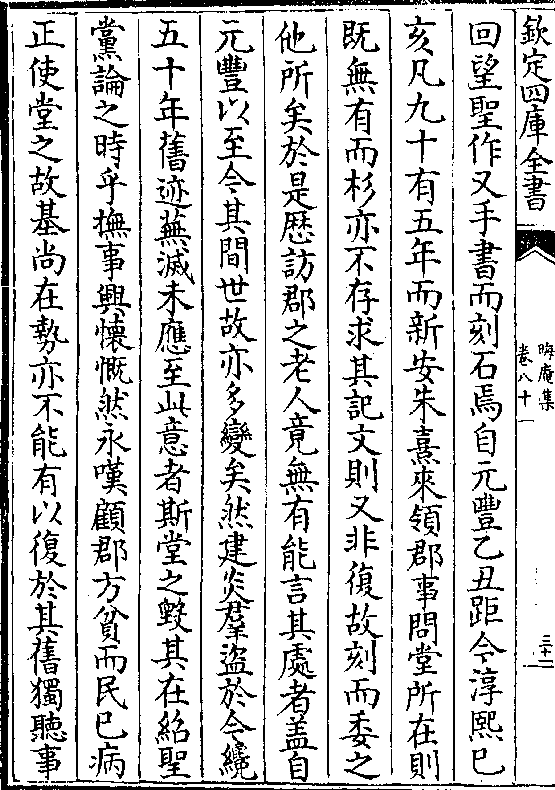 欽定四庫全書
晦庵集
卷八十一
三十一
回望聖作又手書而刻石焉自元豐乙丑距今淳熙已
亥凡九十有五年而新安朱熹來領郡事問堂所在則
既無有而杉亦不存求其記文則又非復故刻而委之
他所矣於是歴訪郡之老人竟無有能言其處者盖自
元豐以至今其間世故亦多變矣然建炎羣盜於今纔
五十年舊迹蕪滅未應至此意者斯堂之毀其在紹聖
黨論之時乎撫事興懷慨然永嘆顧郡方貧而民已病
正使堂之故基尚在勢亦不能有以復於其舊獨聽事